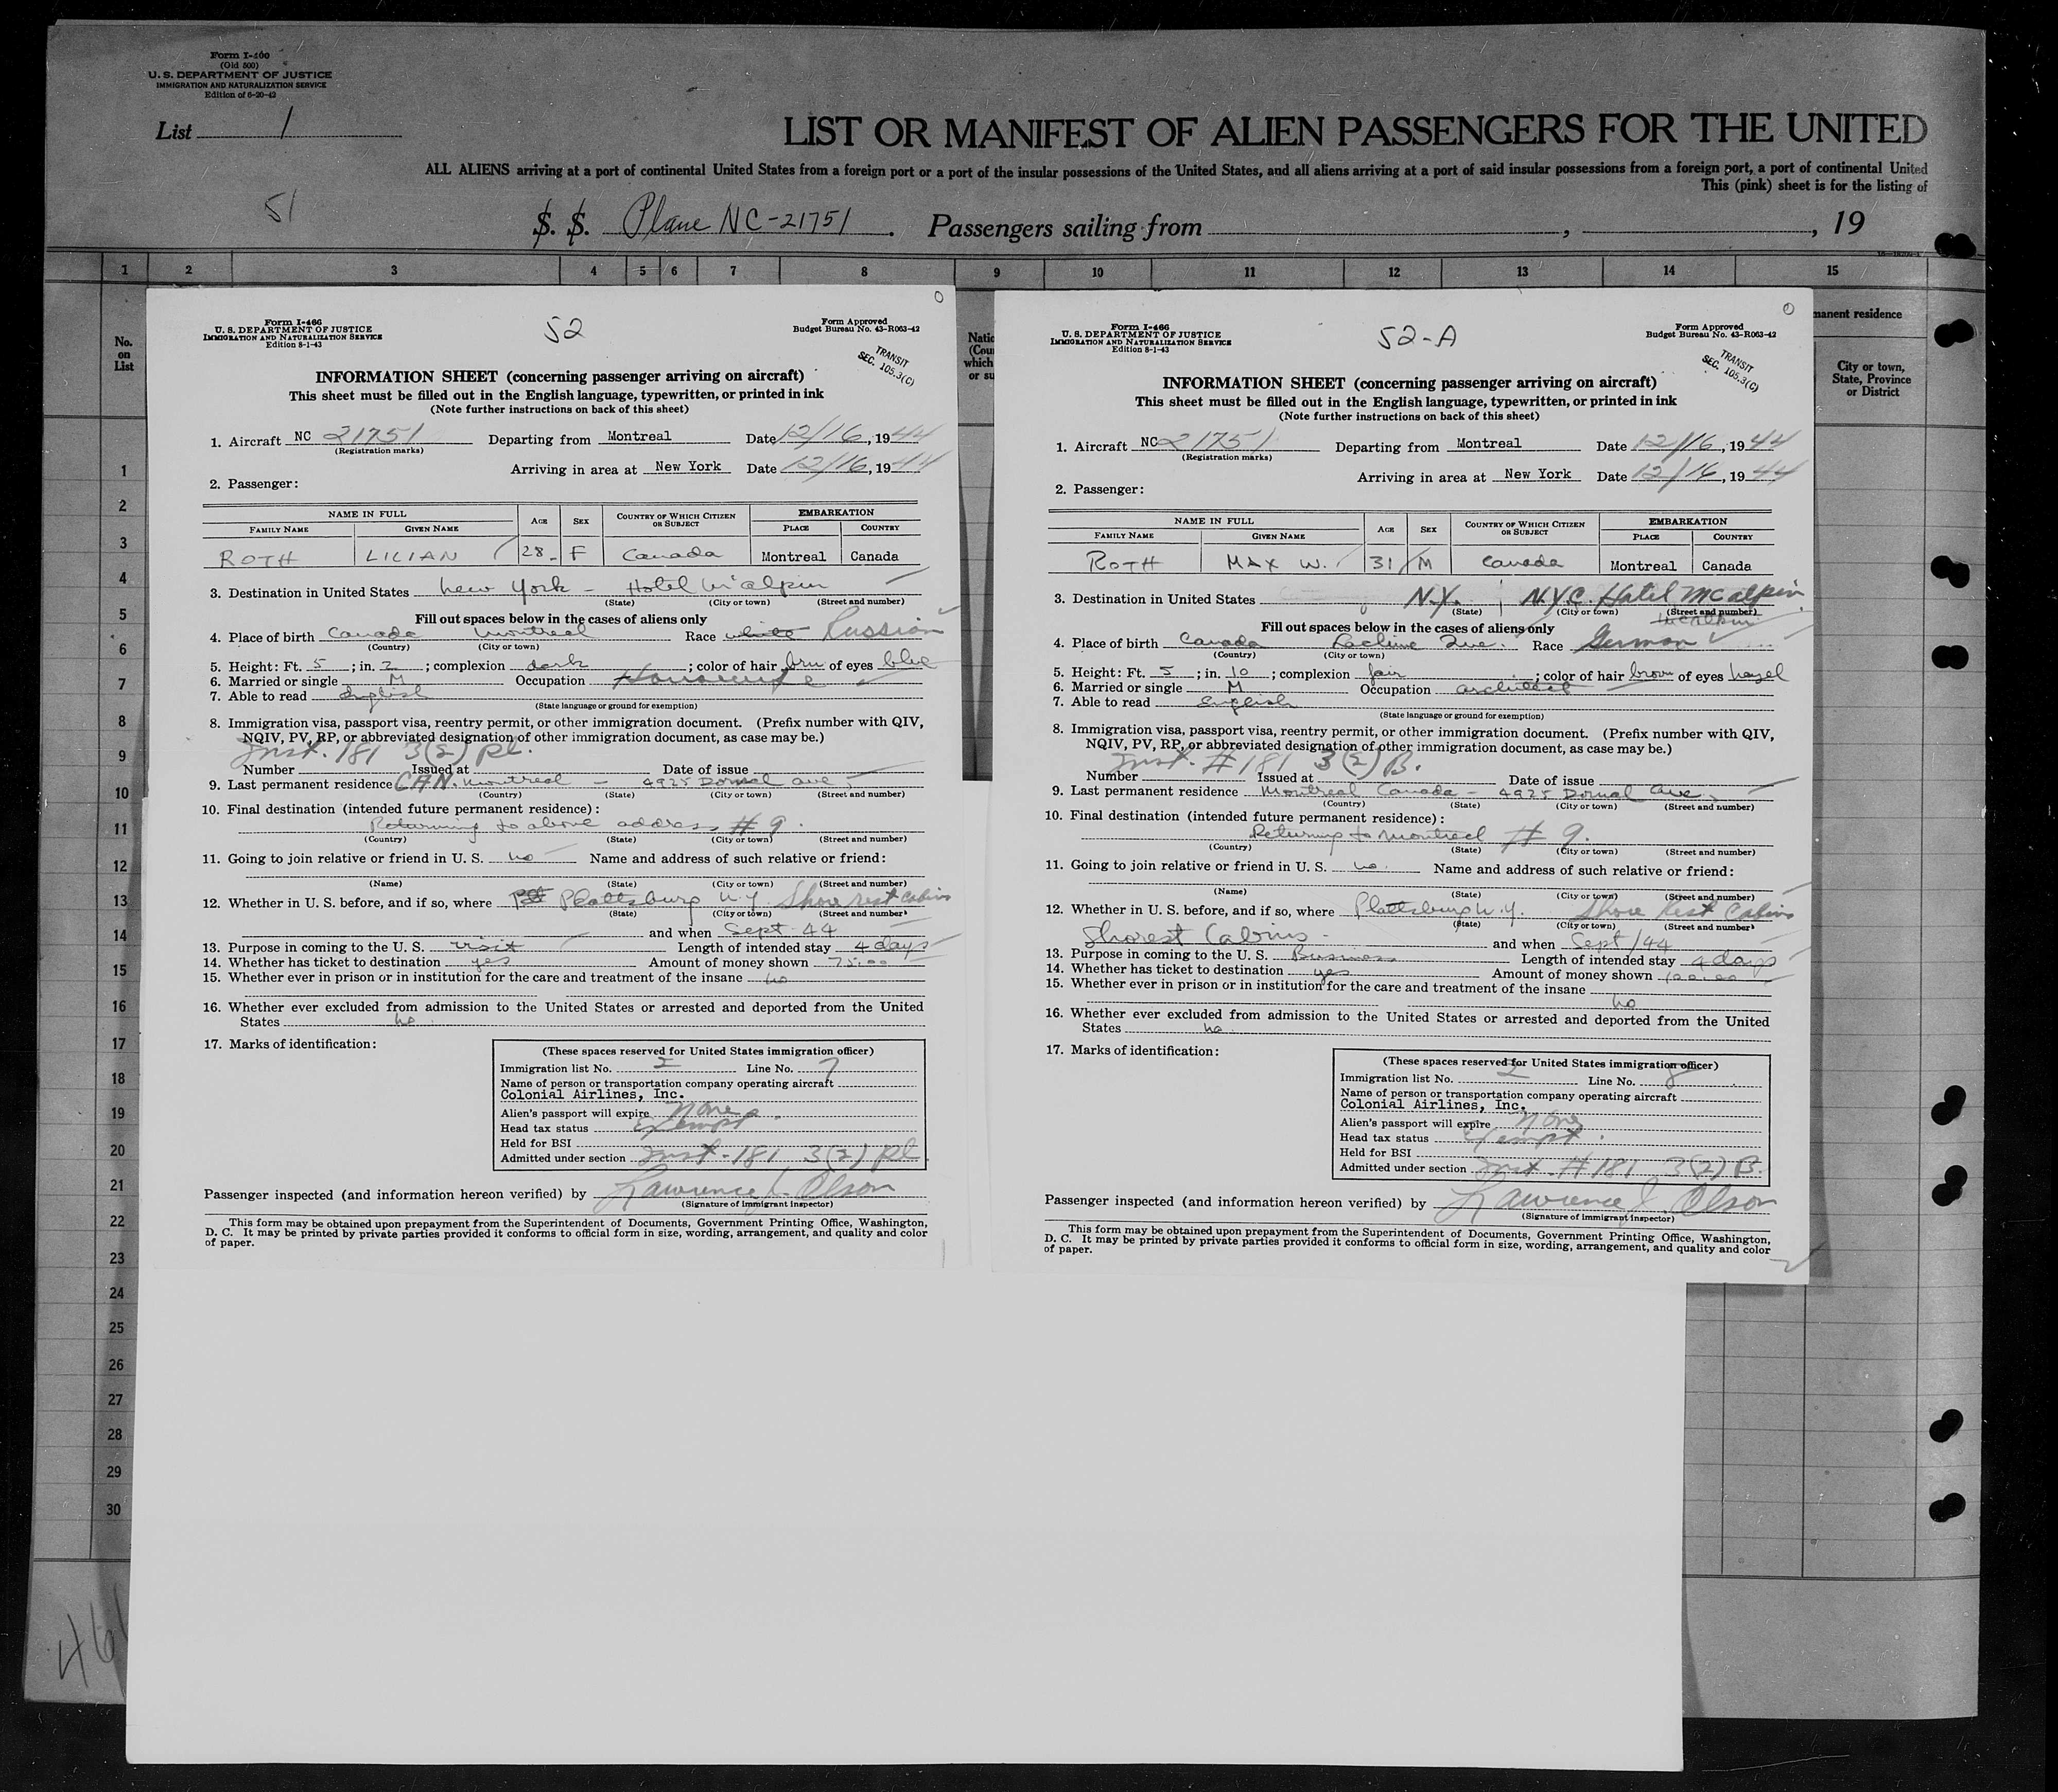 Form I-460
(Old 500)
U. S. DEPARTMENT OF JUSTICE
IMMIGRATION AND NATURALIZATION SERVICE
Edition of 6-20-42
List 1
LIST OR MANIFEST OF ALIEN PASSENGERS FOR THE UNITED
ALL ALIENS arriving at a port of continental United States from a foreign port or a port of the insular possessions of the United States, and all aliens arriving at a port of said insular possessions from a foreign port, a port of continental United
This (pink) sheet is for the listing of
51
S. S. Plane NC-21751. Passengers sailing from , , 19
1 2 3 4 5 6 7 8 9 10 11 12 13 14 15
No.
on
List
Natio
(Coun
which
or su
manent residence
City or town,
State, Province
or District
1
2
3
4
5
6
7
8
9
10
11
12
13
14
15
16
17
18
19
20
21
22
23
24
25
26
27
28
29
30
Form I-466
U. S. DEPARTMENT OF JUSTICE
IMMIGRATION AND NATURALIZATION SERVICE
Edition 8-1-43
52
Form Approved
Budget Bureau No. 43-R063-42
TRANSIT
SEC. 105.3(C)
INFORMATION SHEET (concerning passenger arriving on aircraft)
This sheet must be filled out in the English language, typewritten, or printed in ink
(Note further instructions on back of this sheet)
1. Aircraft NC 21751 Departing from Montreal Date 12/16, 1944
(Registration marks)
Arriving in area at New York Date 12/16, 1944
2. Passenger:
NAME IN FULL AGE SEX COUNTRY OF WHICH CITIZEN OR SUBJECT EMBARKATION
FAMILY NAME GIVEN NAME PLACE COUNTRY
ROTH LILIAN 28 F Canada Montreal Canada
3. Destination in United States New York - Hotel McAlpin
(State) (City or town) (Street and number)
Fill out spaces below in the cases of aliens only
4. Place of birth Canada Montreal Race white Russian
(Country) (City or town)
5. Height: Ft. 5; in. 2; complexion dark; color of hair brn of eyes blue
6. Married or single M Occupation Housewife
7. Able to read English
(State language or ground for exemption)
8. Immigration visa, passport visa, reentry permit, or other immigration document. (Prefix number with QIV,
NQIV, PV, RP, or abbreviated designation of other immigration document, as case may be.)
Inst. 181 3(2) Pl.
Number Issued at Date of issue
9. Last permanent residence CAN. Montreal - 4925 Dornal Ave
(Country) (State) (City or town) (Street and number)
10. Final destination (intended future permanent residence):
Returning to above address # 9.
(Country) (State) (City or town) (Street and number)
11. Going to join relative or friend in U. S. no Name and address of such relative or friend:
(Name) (State) (City or town) (Street and number)
12. Whether in U. S. before, and if so, where Plattsburg N.Y. Shore rest Cabins
(State) (City or town) (Street and number)
and when Sept 44
13. Purpose in coming to the U. S. visit Length of intended stay 4 days
14. Whether has ticket to destination yes Amount of money shown 75.00
15. Whether ever in prison or in institution for the care and treatment of the insane no
16. Whether ever excluded from admission to the United States or arrested and deported from the United
States no
17. Marks of identification:
(These spaces reserved for United States immigration officer)
Immigration list No. 2 Line No. 7
Name of person or transportation company operating aircraft
Colonial Airlines, Inc.
Alien's passport will expire None
Head tax status Exempt
Held for BSI
Admitted under section Inst-181 3(2) Pl.
Passenger inspected (and information hereon verified) by Lawrence J. Olson
(Signature of immigrant inspector)
This form may be obtained upon prepayment from the Superintendent of Documents, Government Printing Office, Washington,
D. C. It may be printed by private parties provided it conforms to official form in size, wording, arrangement, and quality and color
of paper.
Form I-466
U. S. DEPARTMENT OF JUSTICE
IMMIGRATION AND NATURALIZATION SERVICE
Edition 8-1-43
52-A
Form Approved
Budget Bureau No. 43-R063-42
TRANSIT
SEC. 105.3(C)
INFORMATION SHEET (concerning passenger arriving on aircraft)
This sheet must be filled out in the English language, typewritten, or printed in ink
(Note further instructions on back of this sheet)
1. Aircraft NC 21751 Departing from Montreal Date 12/16, 1944
(Registration marks)
Arriving in area at New York Date 12/16, 1944
2. Passenger:
NAME IN FULL AGE SEX COUNTRY OF WHICH CITIZEN OR SUBJECT EMBARKATION
FAMILY NAME GIVEN NAME PLACE COUNTRY
ROTH MAX W. 31 M Canada Montreal Canada
3. Destination in United States N.Y. N.Y.C. Hotel McAlpin
(State) (City or town) (Street and number)
McAlpin
Fill out spaces below in the cases of aliens only
4. Place of birth Canada Lachine Que. Race German
(Country) (City or town)
5. Height: Ft. 5; in. 10; complexion fair; color of hair brown of eyes hazel
6. Married or single M Occupation architect
7. Able to read English
(State language or ground for exemption)
8. Immigration visa, passport visa, reentry permit, or other immigration document. (Prefix number with QIV,
NQIV, PV, RP, or abbreviated designation of other immigration document, as case may be.)
Inst. #181 3(2) B.
Number Issued at Date of issue
9. Last permanent residence Montreal Canada - 4925 Dornal Ave.
(Country) (State) (City or town) (Street and number)
10. Final destination (intended future permanent residence):
Returning to Montreal # 9.
(Country) (State) (City or town) (Street and number)
11. Going to join relative or friend in U. S. no. Name and address of such relative or friend:
(Name) (State) (City or town) (Street and number)
12. Whether in U. S. before, and if so, where Plattsburg N.Y. Shore Rest Cabins
(State) (City or town) (Street and number)
Shorest Cabins and when Sept/44
13. Purpose in coming to the U. S. Business Length of intended stay 4 days
14. Whether has ticket to destination yes Amount of money shown 100.00
15. Whether ever in prison or in institution for the care and treatment of the insane
no
16. Whether ever excluded from admission to the United States or arrested and deported from the United
States no.
17. Marks of identification:
(These spaces reserved for United States immigration officer)
Immigration list No. 2 Line No. 8
Name of person or transportation company operating aircraft
Colonial Airlines, Inc.
Alien's passport will expire None
Head tax status Exempt.
Held for BSI
Admitted under section Inst. #181 3(2) B.
Passenger inspected (and information hereon verified) by Lawrence J. Olson
(Signature of immigrant inspector)
This form may be obtained upon prepayment from the Superintendent of Documents, Government Printing Office, Washington,
D. C. It may be printed by private parties provided it conforms to official form in size, wording, arrangement, and quality and color
of paper.